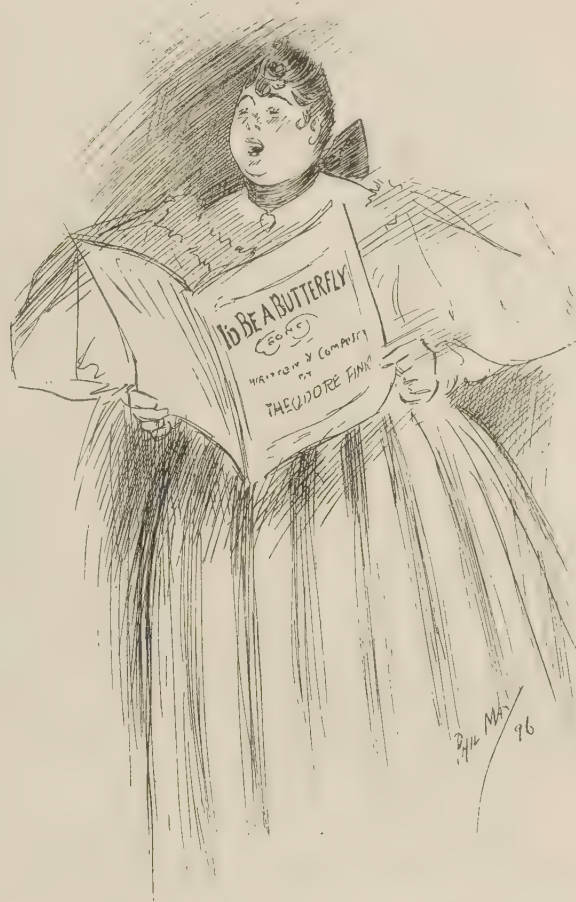 I'D BE A BUTTERFLY
SONG
WRITTEN & COMPOSED
BY
THEODORE FINK
PHIL MAY
96